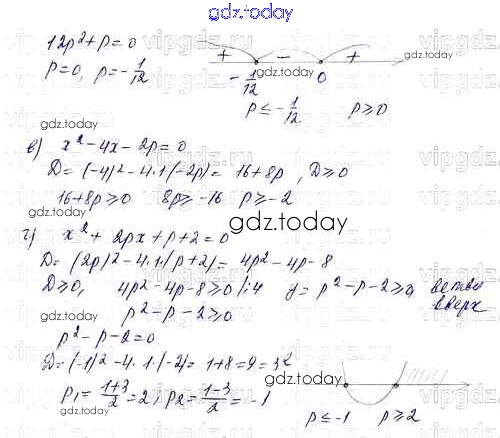 gdz.today
12p²+p=0
p=0, p=-1/12
+ - +
-1/12 gdz.today 0
p≤-1/12 p≥0
gdz.today
в) x²-4x-2p=0
D=(-4)²-4·1(-2p)=16+8p, D≥0
16+8p≥0 8p≥-16 p≥-2
gdz.today gdz.today
г) x²+2px+p+2=0
D=(2p)²-4·1(p+2)=4p²-4p-8
D≥0, 4p²-4p-8≥0/:4 y=p²-p-2≥0, ветви вверх
gdz.today
p²-p-2≥0
p²-p-2=0
D=(-1)²-4·1·(-2)=1+8=9=3²
gdz.today
p₁=(1+3)/2=2; p₂=(1-3)/2=-1
gdz.today
p≤-1 p≥2
gdz.today